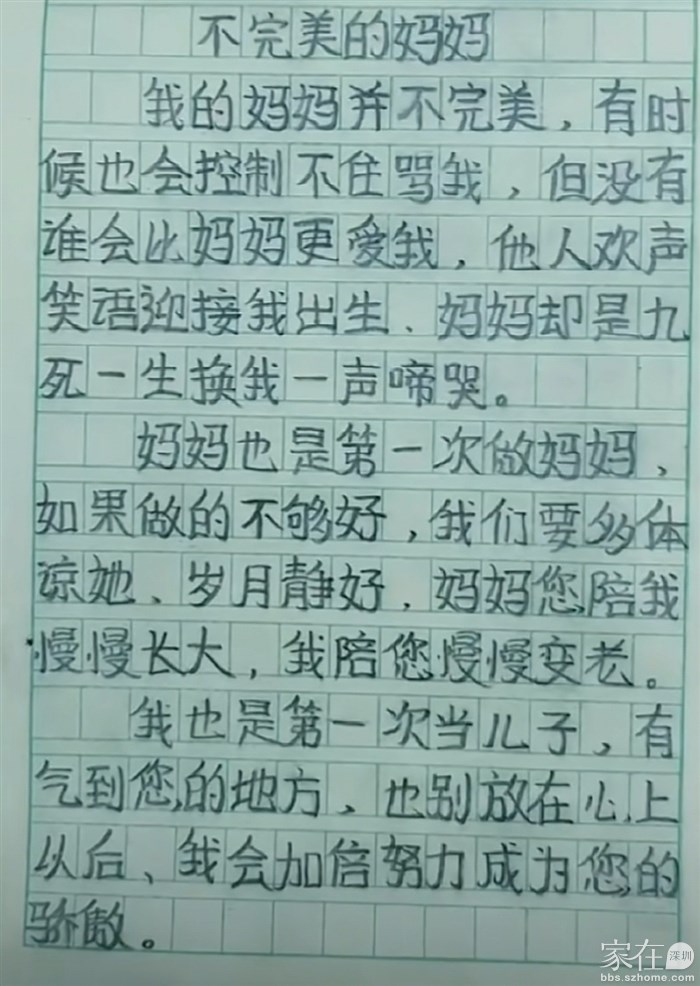 不完美的妈妈
我的妈妈并不完美，有时
候也会控制不住骂我，但没有
谁会比妈妈更爱我，他人欢声
笑语迎接我出生、妈妈却是九
死一生换我一声啼哭。
妈妈也是第一次做妈妈，
如果做的不够好，我们要多体
谅她、岁月静好，妈妈您陪我
慢慢长大，我陪您慢慢变老。
我也是第一次当儿子，有
气到您的地方、也别放在心上
以后、我会加倍努力成为您的
骄傲。
家在深圳
bbs.szhome.com